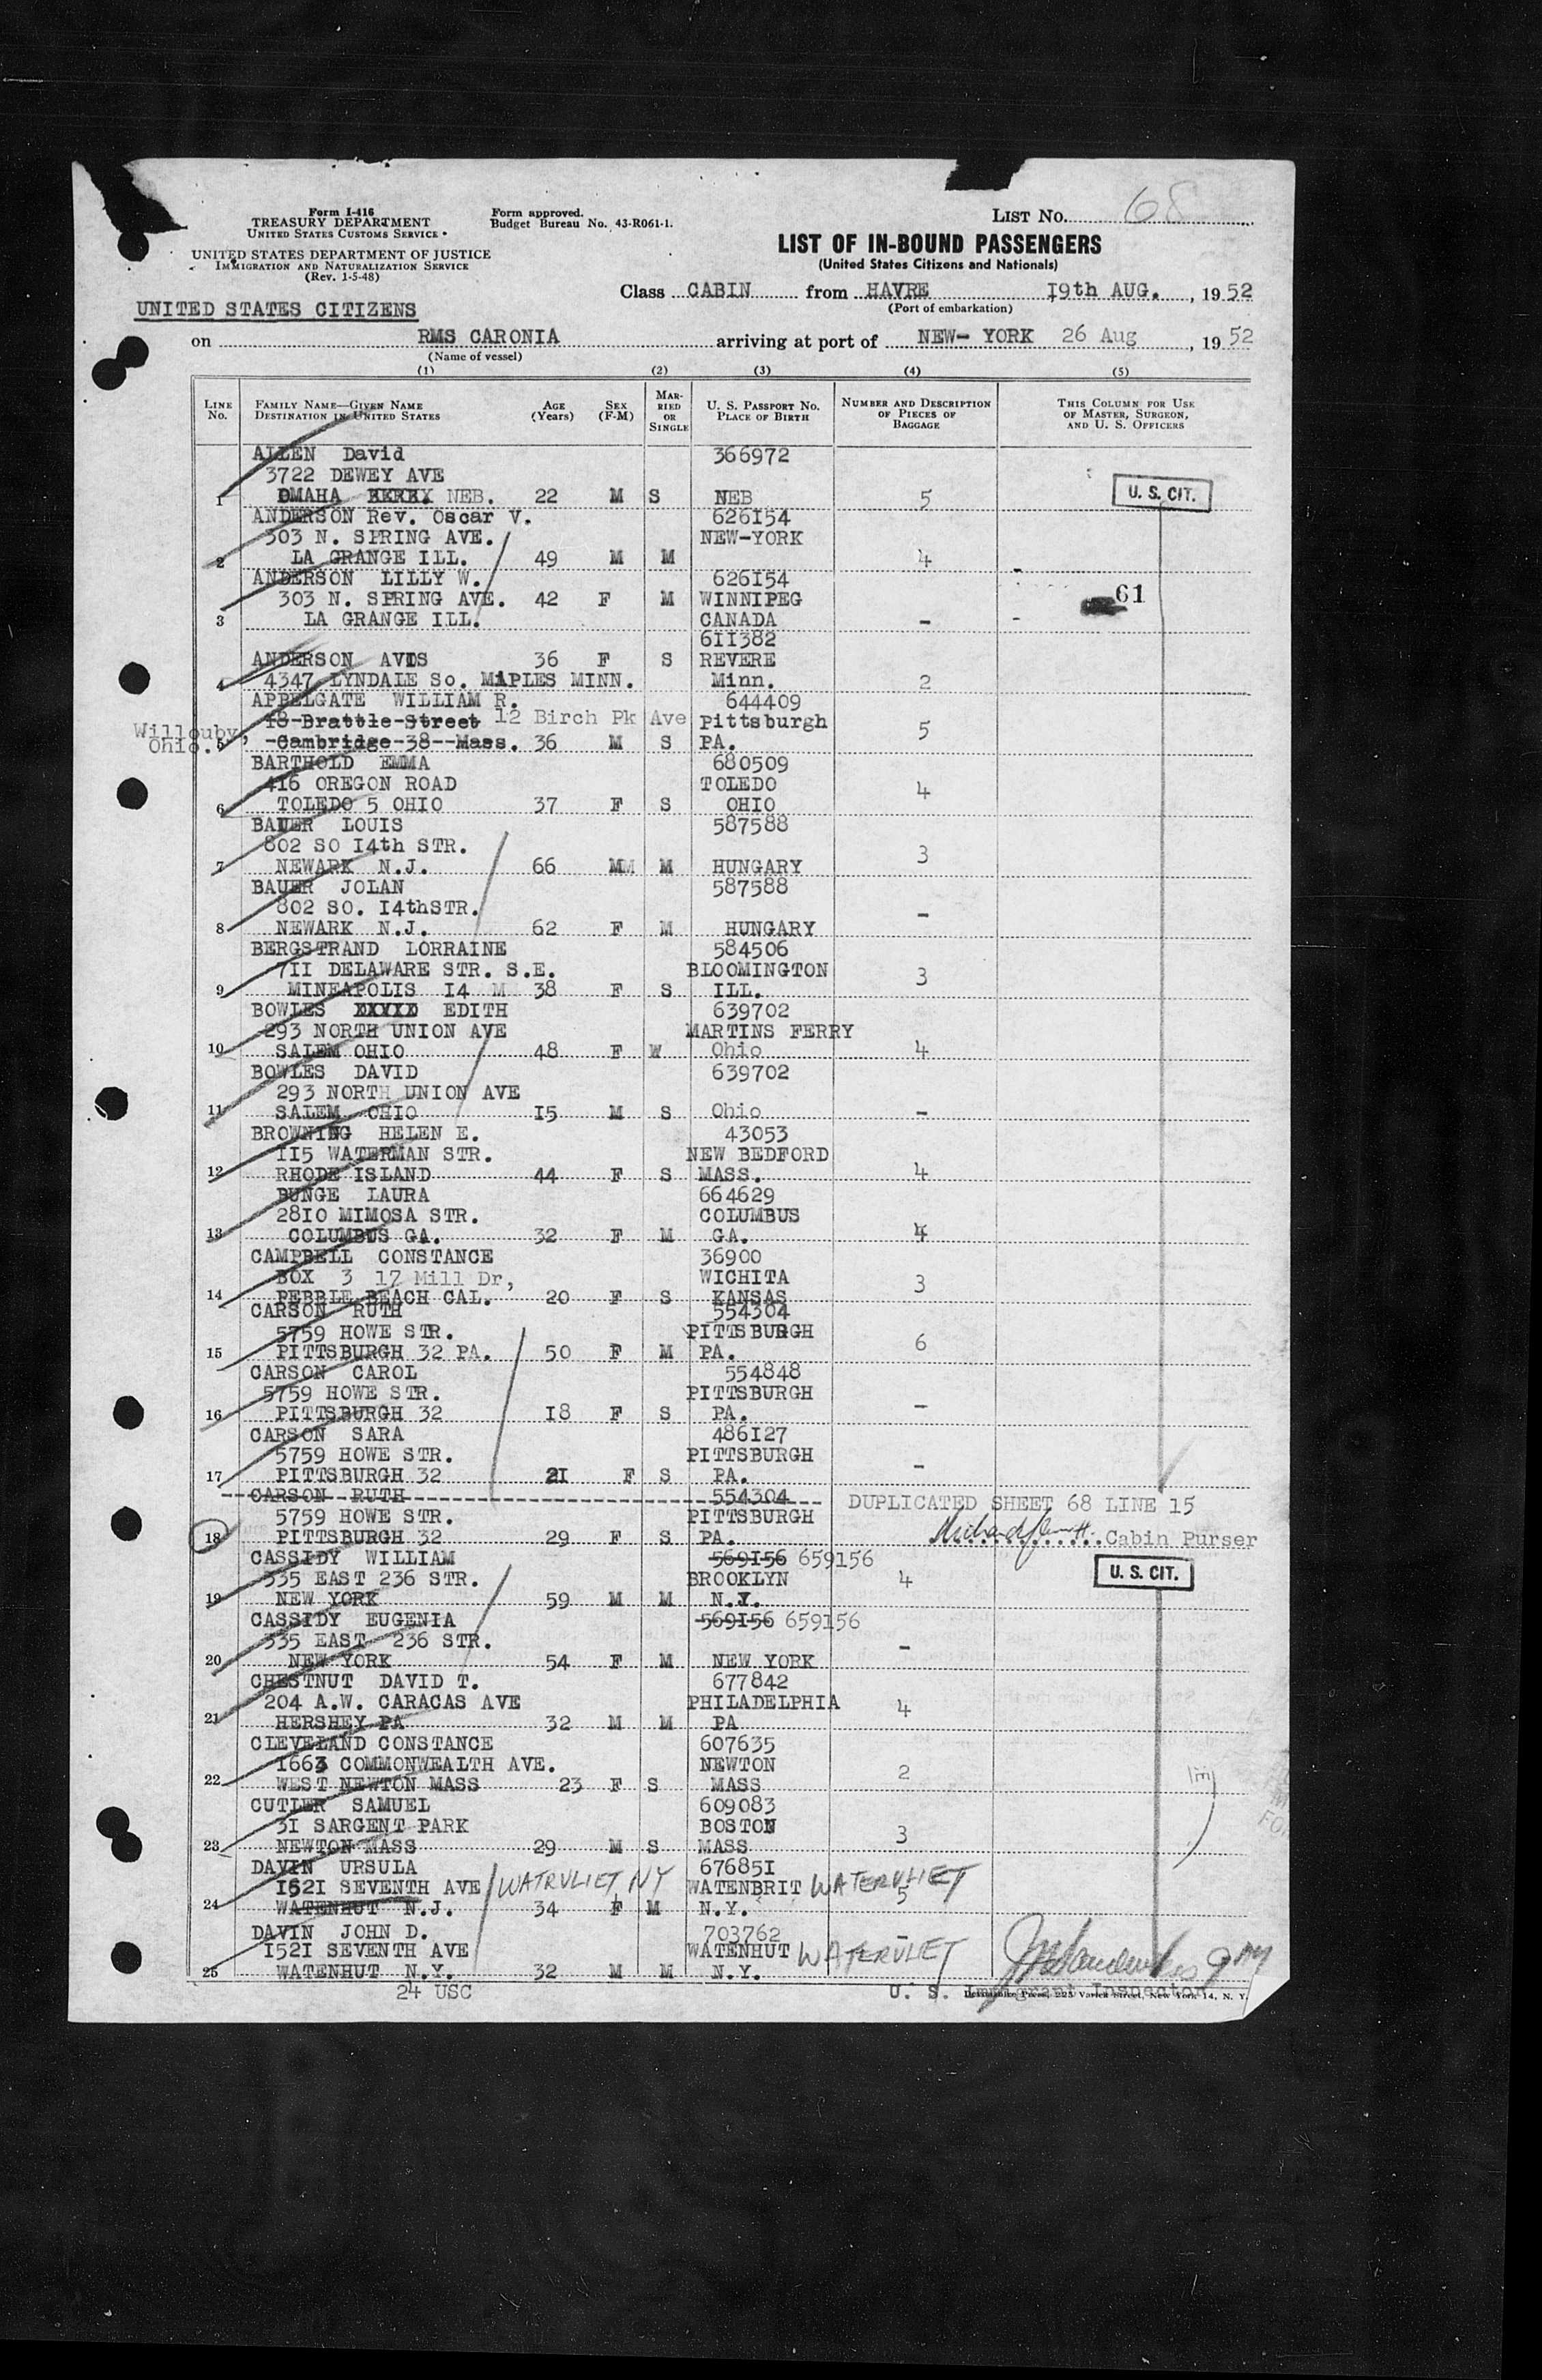 Form I-416
TREASURY DEPARTMENT
UNITED STATES CUSTOMS SERVICE
UNITED STATES DEPARTMENT OF JUSTICE
IMMIGRATION AND NATURALIZATION SERVICE
(Rev. 1-5-48)
Form approved.
Budget Bureau No. 43-R061-1.
LIST NO. 68
LIST OF IN-BOUND PASSENGERS
(United States Citizens and Nationals)
Class CABIN from HAVRE 19th AUG., 1952
(Port of embarkation)
UNITED STATES CITIZENS
on RMS CARONIA arriving at port of NEW- YORK 26 Aug, 1952
(Name of vessel)
(1) (2) (3) (4) (5)
LINE NO. FAMILY NAME—GIVEN NAME DESTINATION IN UNITED STATES AGE (Years) SEX (F-M) MARRIED OR SINGLE U. S. PASSPORT NO. PLACE OF BIRTH NUMBER AND DESCRIPTION OF PIECES OF BAGGAGE THIS COLUMN FOR USE OF MASTER, SURGEON, AND U. S. OFFICERS
ALLEN David 366972
3722 DEWEY AVE
1 OMAHA NEB. 22 M S NEB 5 U. S. CIT.
ANDERSON Rev. Oscar V. 626154
303 N. SPRING AVE. NEW-YORK
2 LA GRANGE ILL. 49 M M 4
ANDERSON LILLY W. 626154
303 N. SPRING AVE. 42 F M WINNIPEG 61
3 LA GRANGE ILL. CANADA - -
611382
ANDERSON AVIS 36 F S REVERE
4 4347 LYNDALE So. MAPLES MINN. Minn. 2
APPELGATE WILLIAM R. 644409
18 Brattle Street 12 Birch Pk Ave Pittsburgh
Willouby, Ohio. 5 Cambridge 38 Mass. 36 M S PA. 5
BARTHOLD EMMA 680509
416 OREGON ROAD TOLEDO
6 TOLEDO 5 OHIO 37 F S OHIO 4
BAUER LOUIS 587588
802 SO 14th STR.
7 NEWARK N.J. 66 MM M HUNGARY 3
BAUER JOLAN 587588
802 SO. 14thSTR.
8 NEWARK N.J. 62 F M HUNGARY -
BERGSTRAND LORRAINE 584506
711 DELAWARE STR. S.E. BLOOMINGTON
9 MINEAPOLIS 14 M 38 F S ILL. 3
BOWLES EDITH 639702
293 NORTH UNION AVE MARTINS FERRY
10 SALEM OHIO 48 F W Ohio 4
BOWLES DAVID 639702
293 NORTH UNION AVE
11 SALEM OHIO 15 M S Ohio -
BROWNING HELEN E. 43053
115 WATERMAN STR. NEW BEDFORD
12 RHODE ISLAND 44 F S MASS. 4
BUNGE LAURA 664629
2810 MIMOSA STR. COLUMBUS
13 COLUMBUS GA. 32 F M GA. 4
CAMPBELL CONSTANCE 36900
BOX 3 17 Mill Dr, WICHITA
14 PEBBLE BEACH CAL. 20 F S KANSAS 3
CARSON RUTH 554304
5759 HOWE STR. PITTSBURGH
15 PITTSBURGH 32 PA. 50 F M PA. 6
CARSON CAROL 554848
5759 HOWE STR. PITTSBURGH
16 PITTSBURGH 32 18 F S PA. -
CARSON SARA 486127
5759 HOWE STR. PITTSBURGH
17 PITTSBURGH 32 21 F S PA. -
CARSON RUTH 554304 DUPLICATED SHEET 68 LINE 15
5759 HOWE STR. PITTSBURGH
18 PITTSBURGH 32 29 F S PA. Cabin Purser
CASSIDY WILLIAM 569156 659156
335 EAST 236 STR. BROOKLYN
19 NEW YORK 59 M M N.Y. 4 U. S. CIT.
CASSIDY EUGENIA 569156 659156
335 EAST 236 STR.
20 NEW YORK 54 F M NEW YORK -
CHESTNUT DAVID T. 677842
204 A.W. CARACAS AVE PHILADELPHIA
21 HERSHEY PA 32 M M PA 4
CLEVELAND CONSTANCE 607635
1663 COMMONWEALTH AVE. NEWTON
22 WEST NEWTON MASS 23 F S MASS 2
CUTLER SAMUEL 609083
31 SARGENT PARK BOSTON
23 NEWTON MASS 29 M S MASS 3
DAVIN URSULA 676851
1521 SEVENTH AVE WATRVLIET NY WATENBRIT WATERVLIET
24 WATENHUT N.J. 34 F M N.Y. 5
DAVIN JOHN D. 703762
1521 SEVENTH AVE WATENHUT WATERVLIET -
25 WATENHUT N.Y. 32 M M N.Y.
24 USC
U. S. Immigrant Inspector
225 Varick Street, New York 14, N. Y.